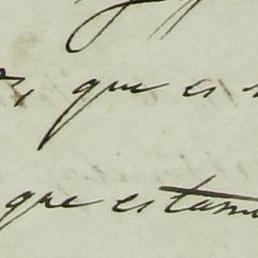 que es
que estam